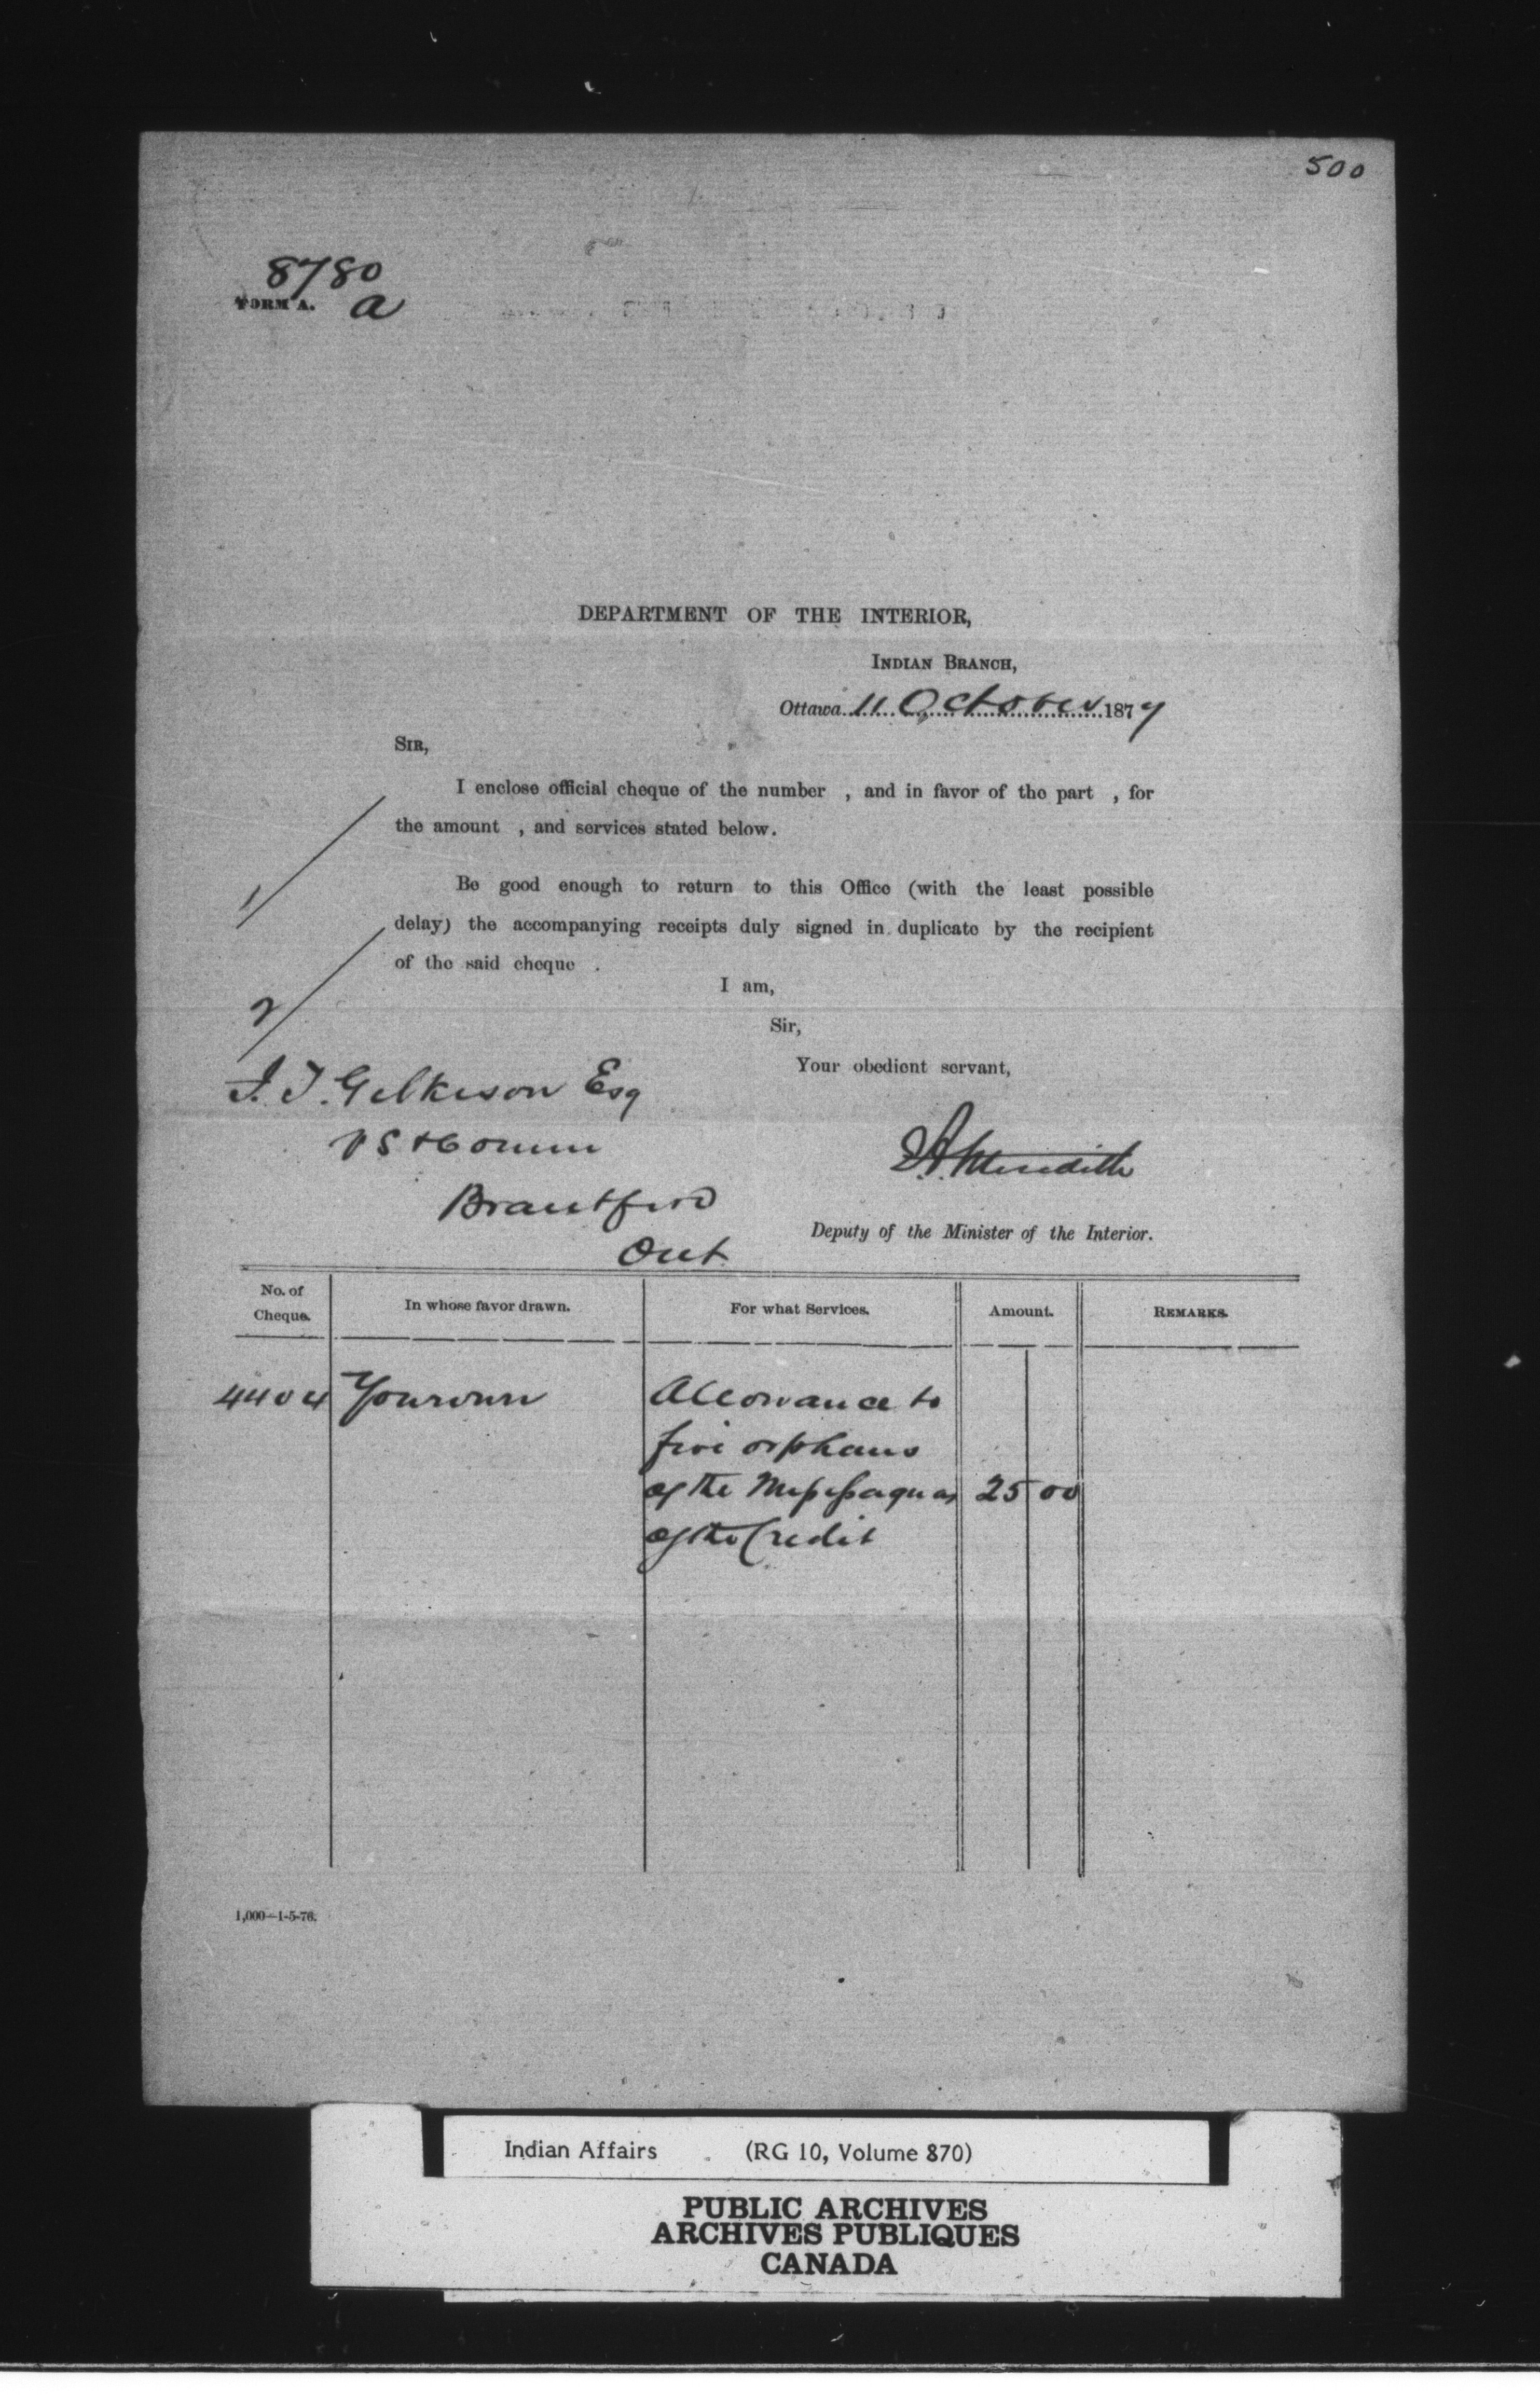 500
8780
FORM A. a
DEPARTMENT OF THE INTERIOR,
INDIAN BRANCH,
Ottawa 11 October 1877
SIR,
I enclose official cheque of the number , and in favor of the part , for
the amount , and services stated below.
1/
Be good enough to return to this Office (with the least possible
delay) the accompanying receipts duly signed in duplicate by the recipient
of the said cheque .
2/
I am,
Sir,
Your obedient servant,
J. T. Gilkison Esq
VS & Comm
Brantford
Ont
EAMeredith
Deputy of the Minister of the Interior.
No. of Cheque. In whose favor drawn. For what Services. Amount. REMARKS.
4404 Your own Allowance to
five orphans
of the Mississaguas 25 00
of the Credit
1,000—1-5-76.
Indian Affairs (RG 10, Volume 870)
PUBLIC ARCHIVES
ARCHIVES PUBLIQUES
CANADA